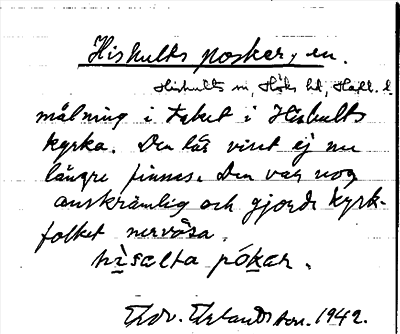 Hishults poskar, en.
Hishults sn, Höks hd, Hall. l.
målning i taket i Hishults
kyrka. Den lär visst ej nu
längre finnas. Den var nog
anskrämlig och gjorde kyrk-
folket nervösa.
hisalta pókar.
Edv. Erlandsson. 1942.